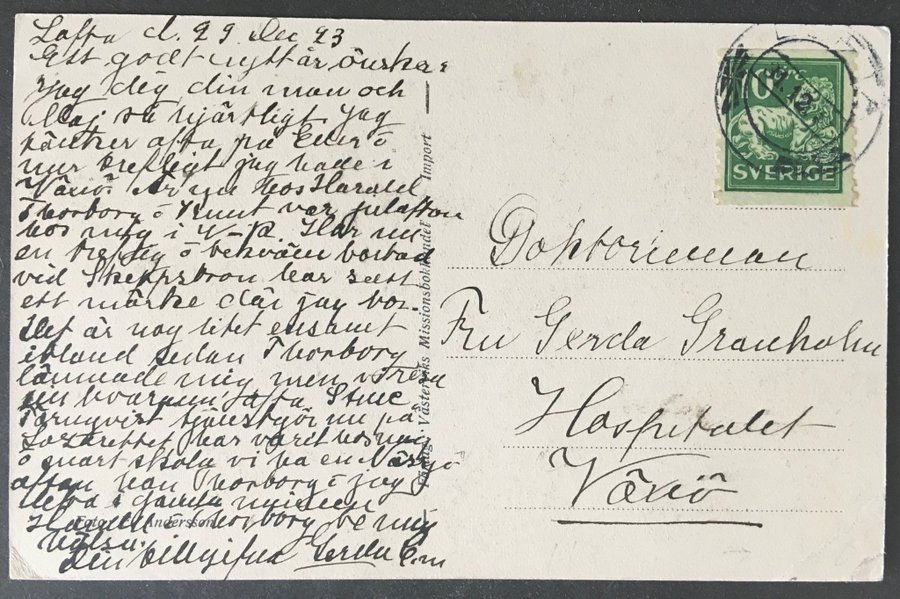 Lofta d. 29 Dec 23
Ett godt nytt år önskar
jag dig, din man och
Maj så hjärtligt. Jag
tänker ofta på Eder o
hur trefligt jag hade i
Växiö. Är nu hos Harald
Thorborg o Knut var julafton
hos mig i V-k. Har nu
en treflig o bekväm bostad
vid Skeppsbron har satt
ett märke där jag bor.
Det är nog litet ensamt
ibland sedan Thorborg
lämnade mig men
Stine
Törnqvist tjänstgör nu på
Lazarettet har varit hos mig
o snart skola vi ha en
afton han Thorborg o jag
lefva i gamla minnen
Harald Thorborg be mig
hälsa.
Din tillgifna Gerda
Foto: Andersson
Förlag: Västerviks Missionsbokhandel Import
SVERIGE
Doktorinnan
Fru Gerda Granholm
Hospitalet
Växiö